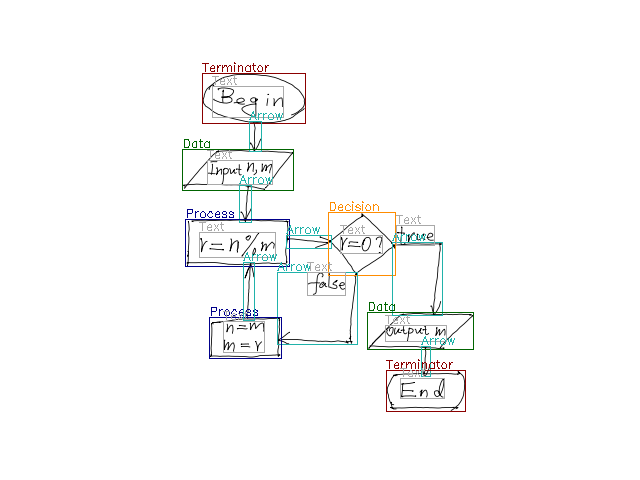 Terminator
Text
Begin
Arrow
Data
Text
Input n, m
Arrow
Process
Text
r = n % m
Arrow
Decision
Text
r=0?
Text
true
Arrow
Arrow
Arrow
Text
false
Process
Text
n = m
m = r
Data
Text
output m
Arrow
Terminator
Text
End